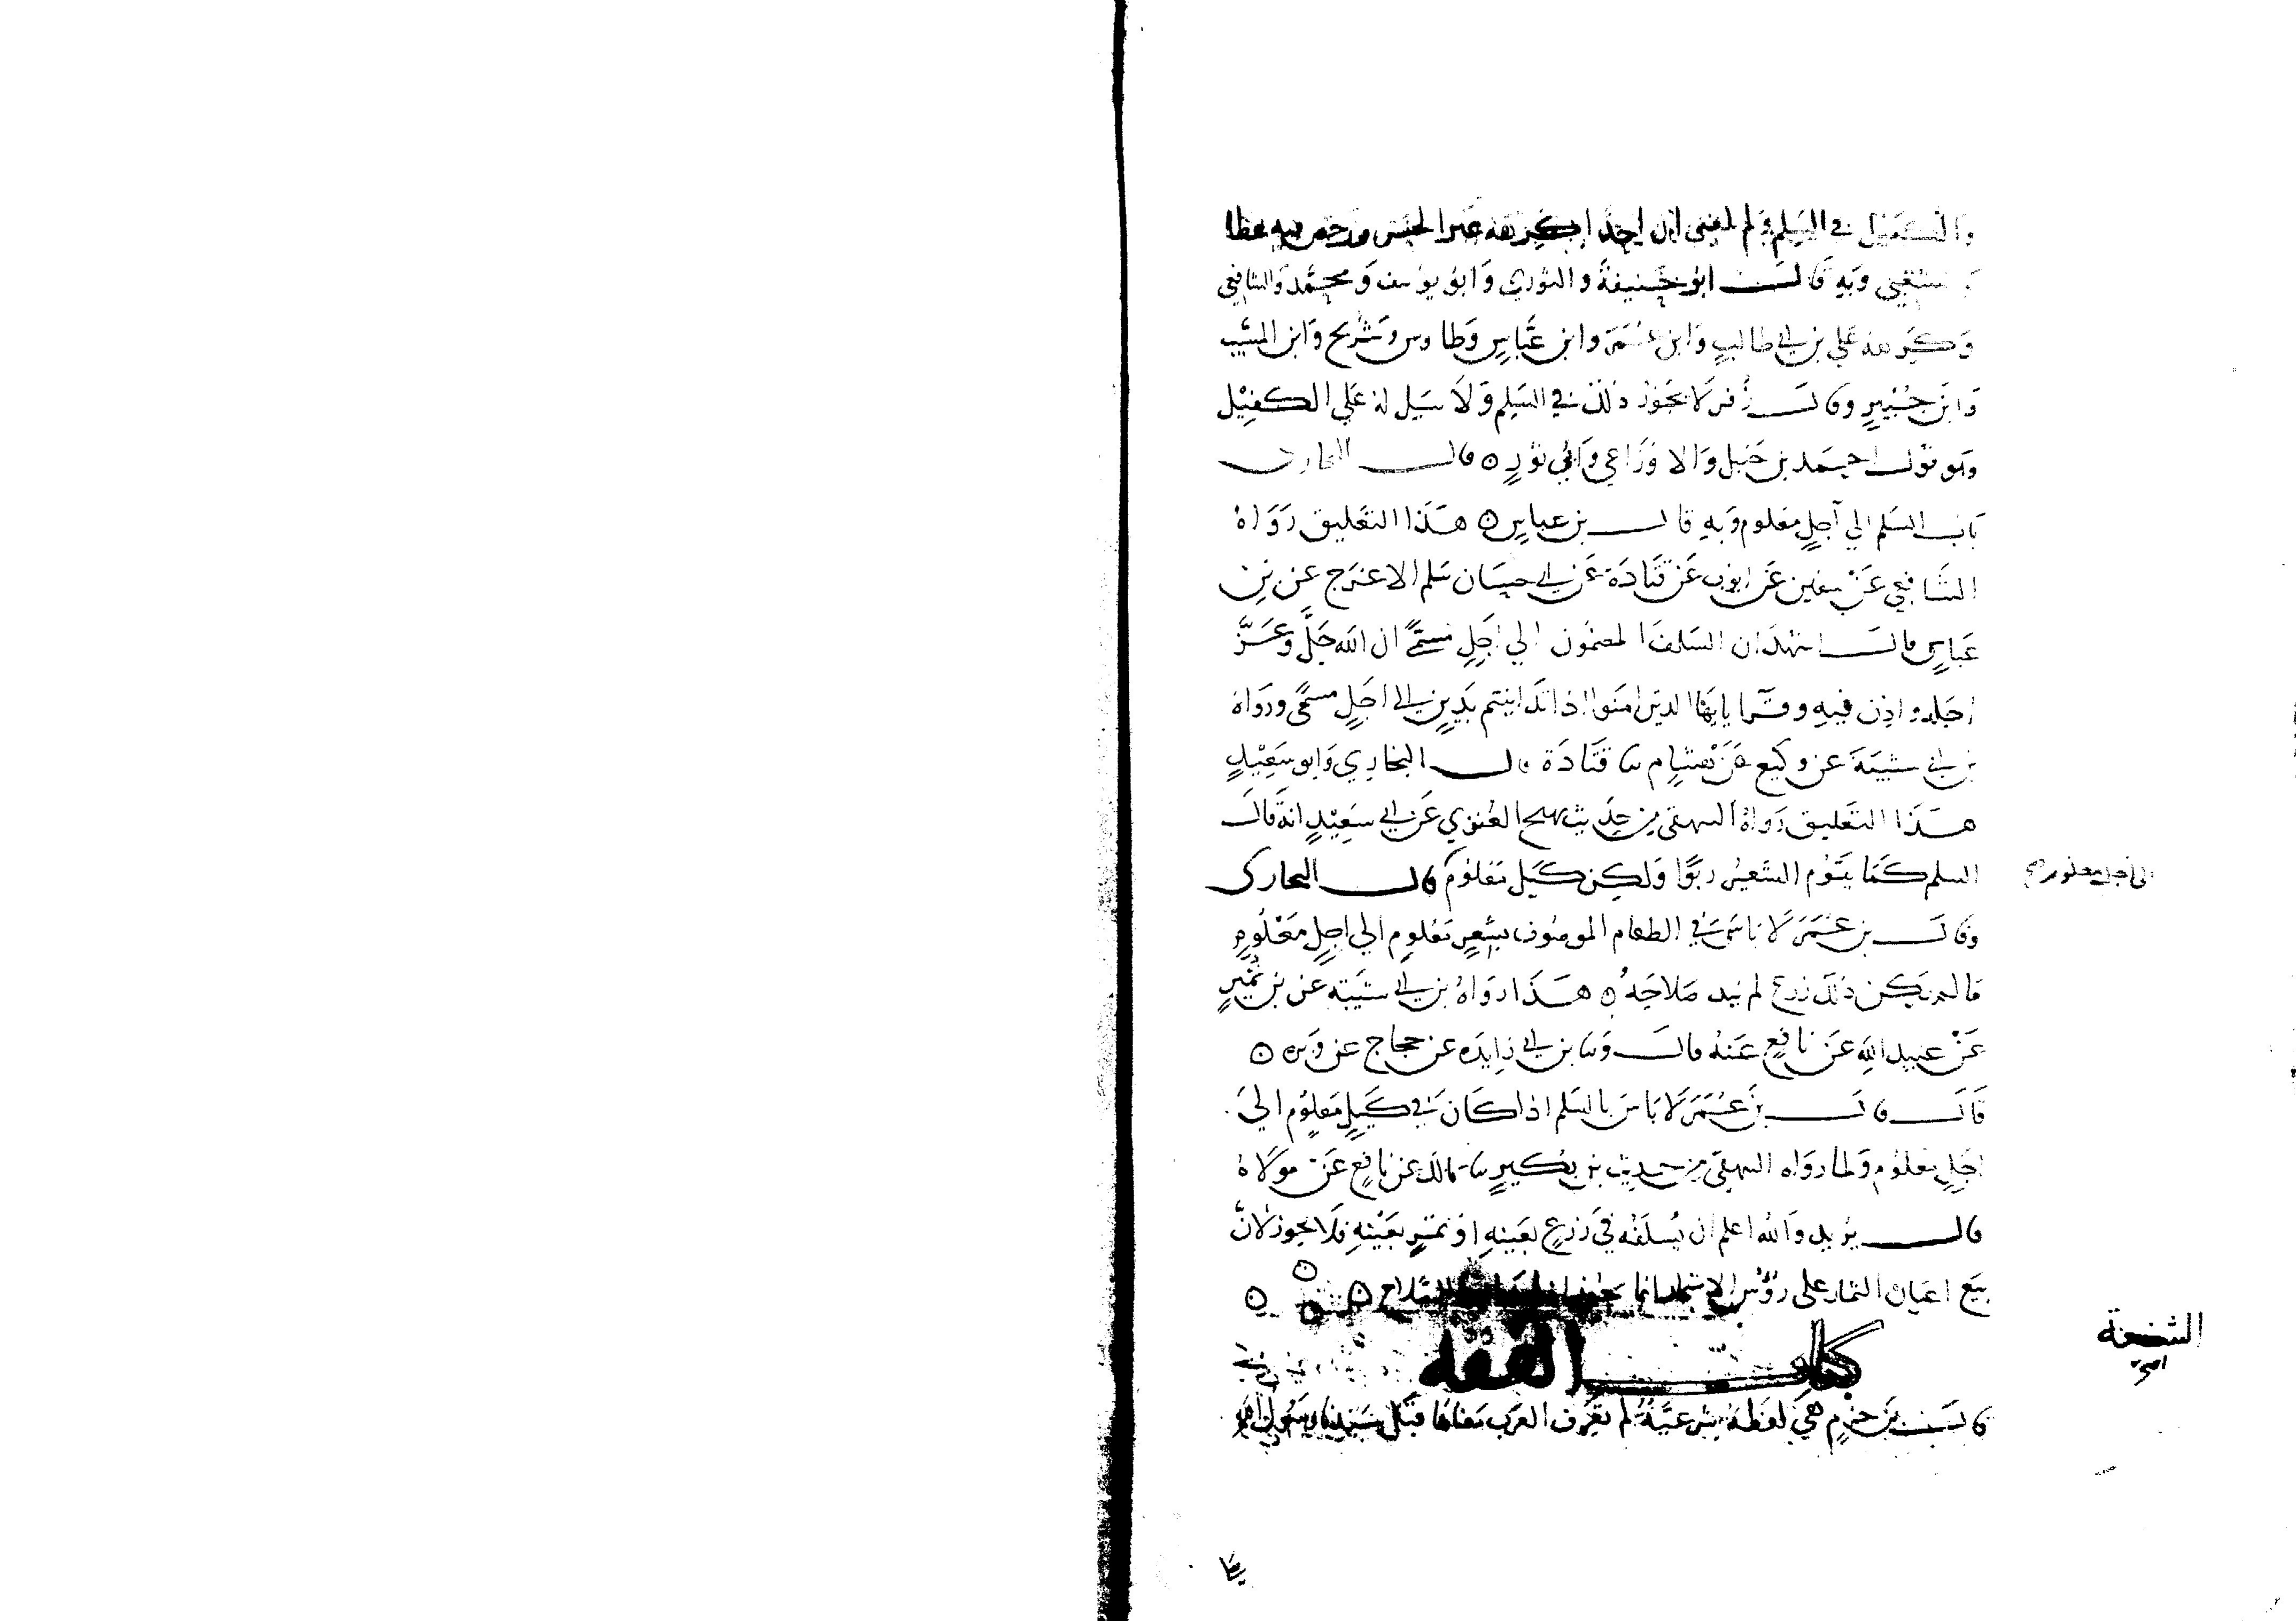 والكفيل في السلم ولم يبلغني ان احدا كرهه غير الحسن ورخص فيه عطا
والشعبي وبه قال ابو حنيفة والثوري وابو يوسف ومحمد والشافعي
وكرهه علي بن ابي طالب وابن عمر وابن عباس وطاوس وشريح وابن المسيب
وابن جبير وقال زفر لا يجوز ذلك في السلم ولا سبيل له علي الكفيل
وهو قول احمد بن حنبل والاوزاعي وابي ثور ن قال البخاري
باب السلم الي اجل معلوم وبه قال بن عباس ن هذا التعليق رواه
الشافعي عن سفين عن ايوب عن قتادة عن ابي حسان مسلم الاعرج عن بن
عباس قال اشهد ان السلف المضمون الي اجل مسمى ان الله جل وعز
احله واذن فيه وقرا يايها الذين امنوا اذا تداينتم بدين الى اجل مسمى ورواه
بن ابي شيبة عن وكيع عن هشام ثنا قتادة قال البخاري وابو سعيد
هذا التعليق رواه البيهقي من حديث نبيح العنزي عن ابي سعيد انه قال
السلم كما يقوم السعر ربوا ولكن كيل معلوم قال البخاري
الى اجل معلوم صح
وقال بن عمر لا باس في الطعام الموصوف بسعر معلوم الي اجل معلوم
ما لم يكن ذلك زرع لم يبد صلاحه ن هذا رواه بن ابي شيبة عن بن نمير
عن عبيد الله عن نافع عنه قال وثنا بن ابي زايده عن حجاج عن وبره ن
قال قال بن عمر لا باس بالسلم اذا كان في كيل معلوم الي
اجل معلوم ولما رواه البيهقي من حديث بن بكير ثنا مالك عن نافع عن مولاه
قال يريد والله اعلم ان يسلفه في زرع بعينه او تمر بعينه فلا يجوز لان
بيع اعيان الثمار على رؤس الاشجار انما يجوز اذا الصلاح ن ن
كتاب الشفعة
الشفعة
قال بن حزم هي لفظة شرعية لم تعرف العرب معناها قبل سيدنا رسول الله